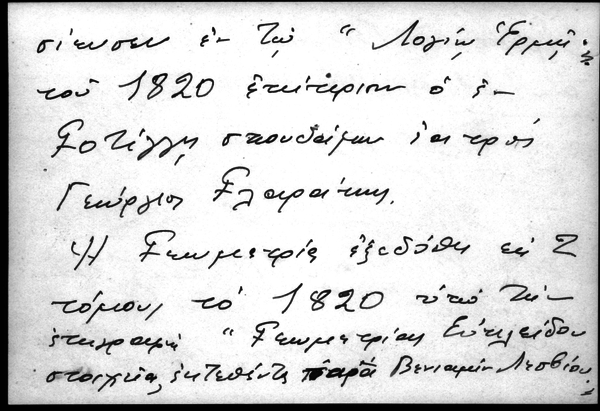 σίευσεν ἐν τῷ "Λογίῳ Ἑρμῇ"
τοῦ 1820 ἐπίκρισιν ὁ ἐν
Γοτίγγῃ σπουδάζων ἰατρός
Γεώργιος
Ἡ Γεωμετρία ἐξεδόθη εἰς 2
τόμους τὸ 1820 ὑπὸ τὴν
ἐπιγραφὴν "Γεωμετρίας Εὐκλείδου
στοιχεῖα, ἐκτεθέντα παρὰ Βενιαμὶν Λεσβίου